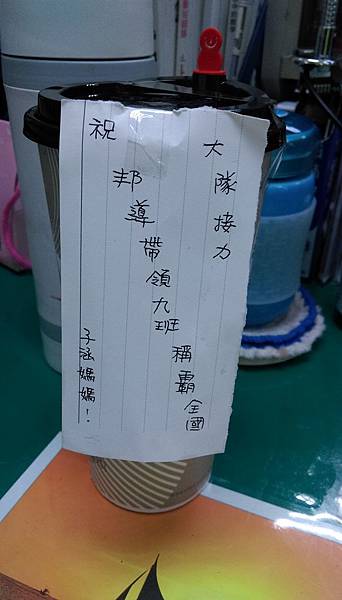 大隊接力
祝
邦導帶領九班稱霸全國
子涵媽媽！